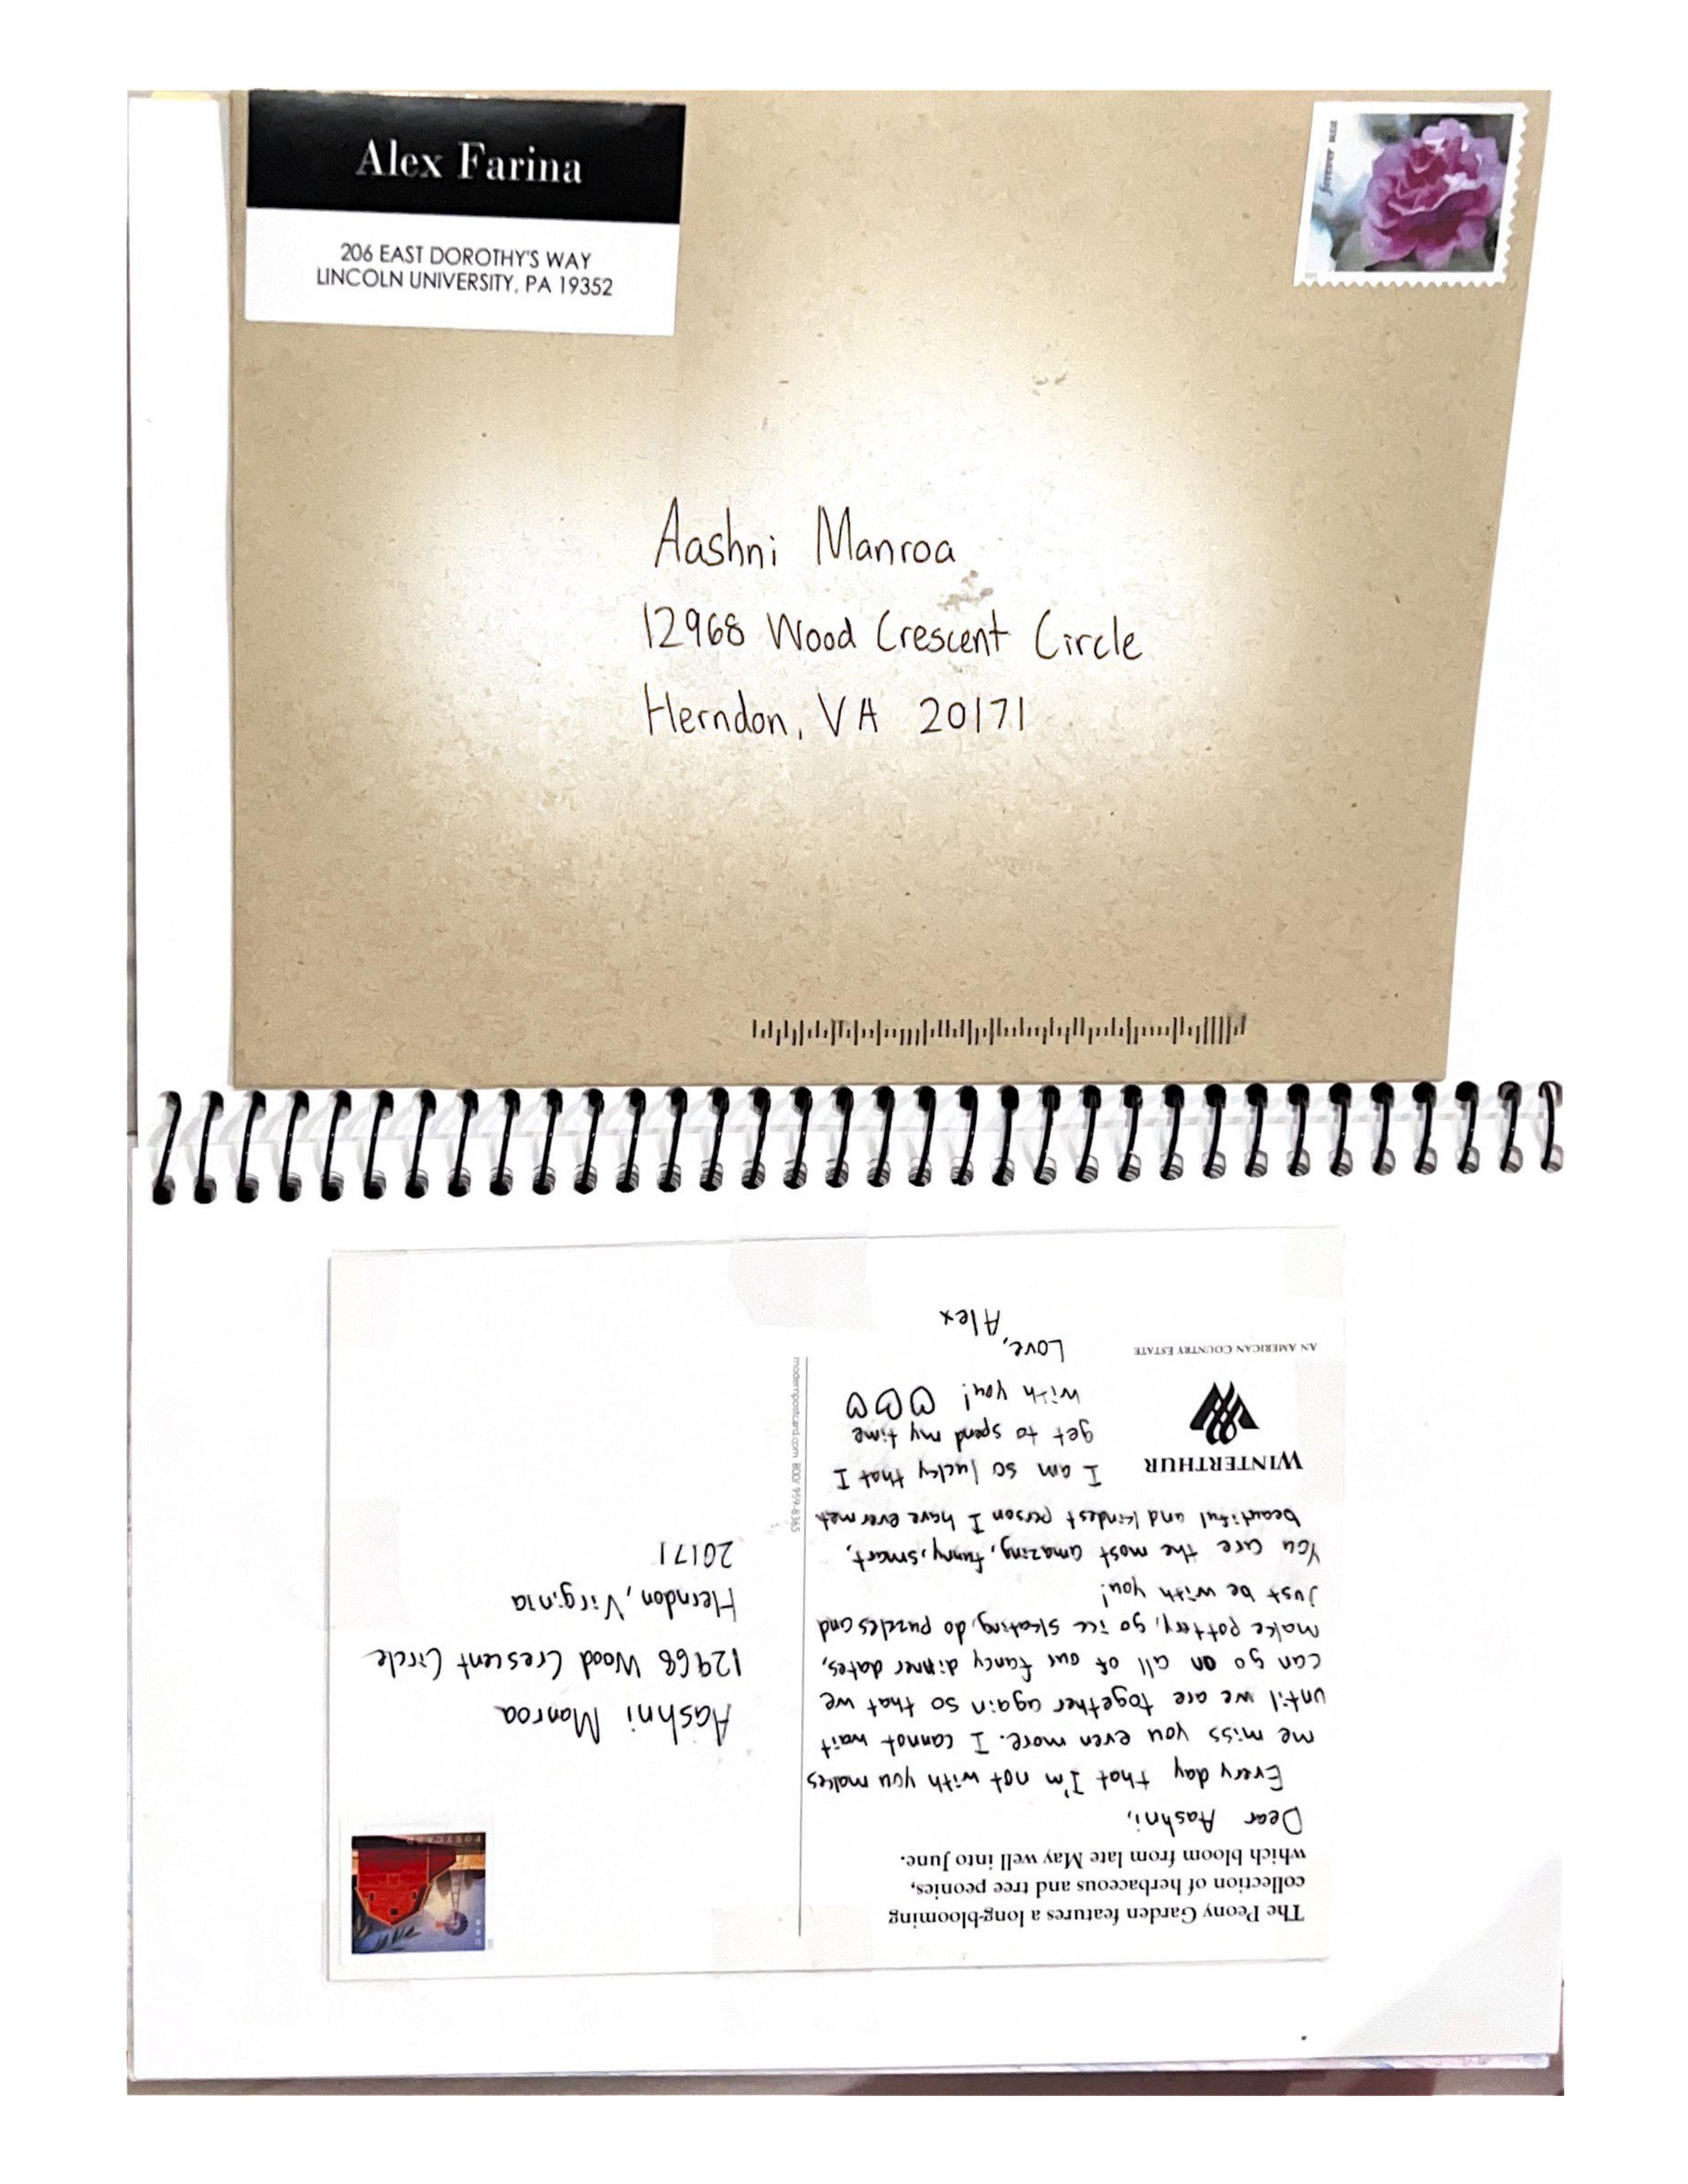 Alex Farina
206 EAST DOROTHY'S WAY
LINCOLN UNIVERSITY, PA 19352
forever USA
Aashni Manroa
12968 Wood Crescent Circle
Herndon, VA 20171
The Peony Garden features a long-blooming
collection of herbaceous and tree peonies,
which bloom from late May well into June.
Dear Aashni,
Every day that I'm not with you makes
me miss you even more. I cannot wait
until we are together again so that we
can go on all of our fancy dinner dates,
make pottery, go ice skating, do puzzles and
just be with you!
You are the most amazing, funny, smart,
beautiful and kindest person I have ever met.
I am so lucky that I
get to spend my time
with you! ♡♡♡
Love,
Alex
WINTERTHUR
AN AMERICAN COUNTRY ESTATE
modernpostcard.com 800/ 959-8365
POSTCARD
USA
Aashni Manroa
12968 Wood Crescent Circle
Herndon, Virginia
20171